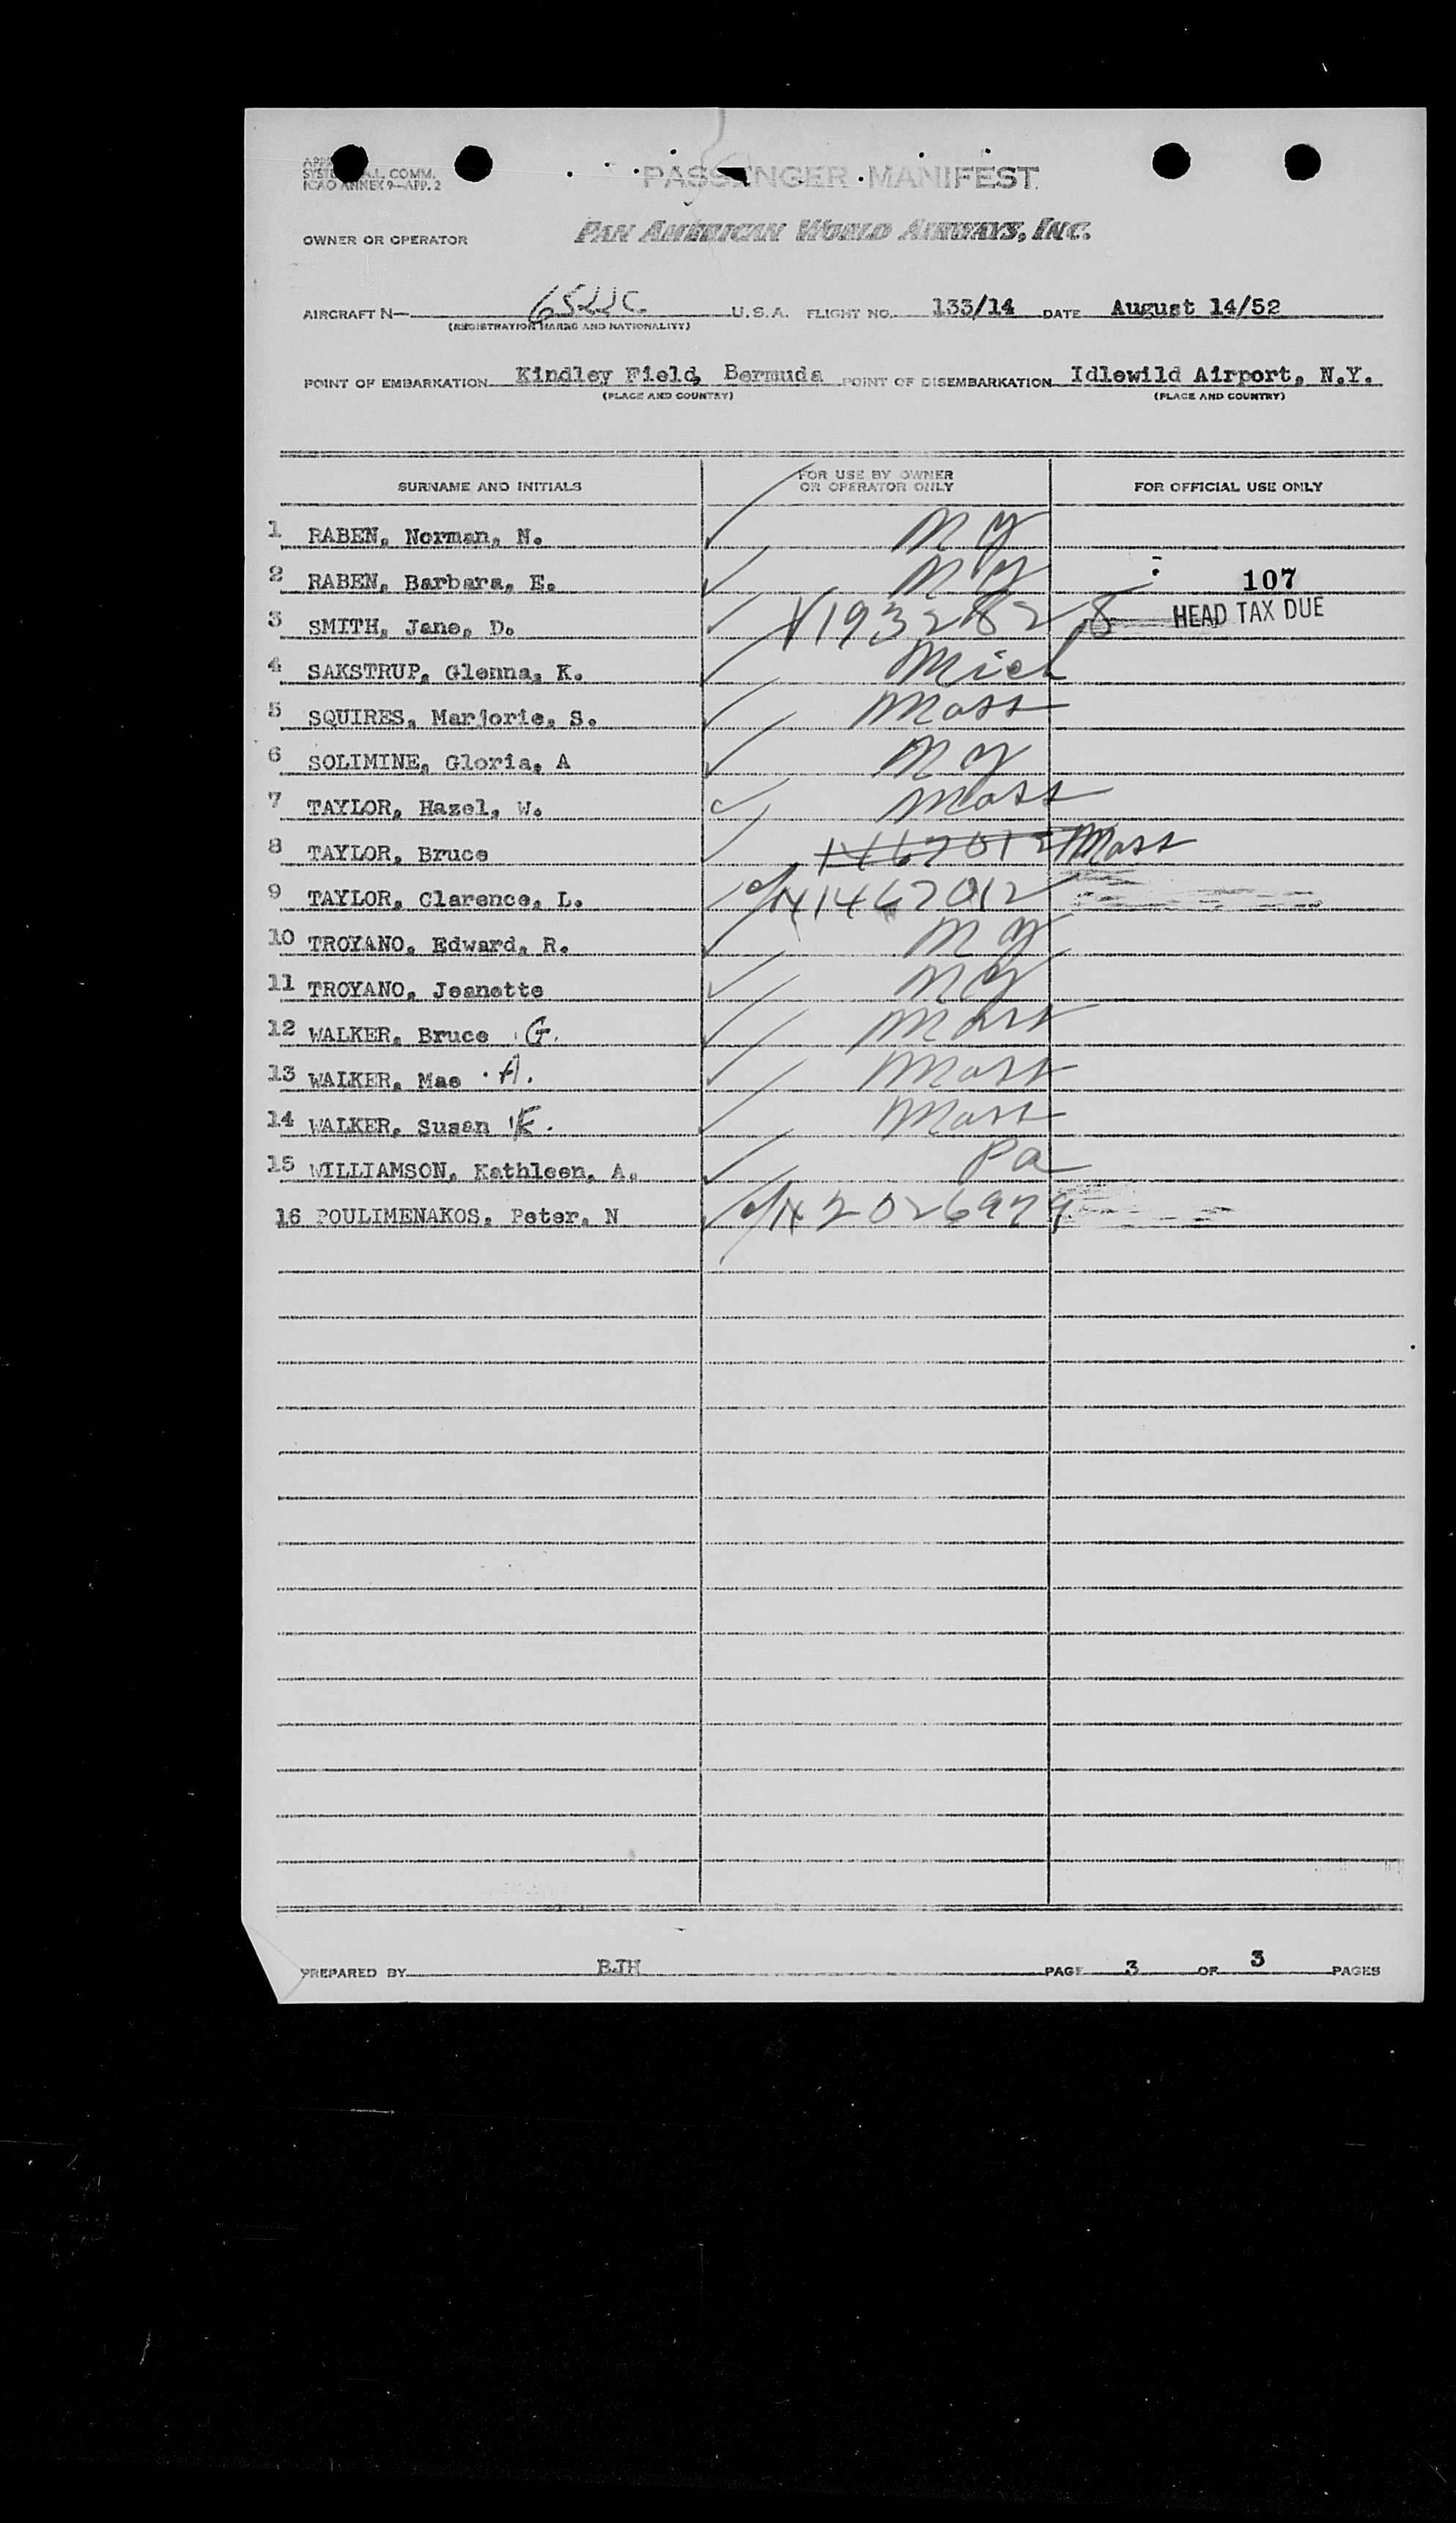 SYSTE A.L. COMM.
ICAO ANNEX 9—APP. 2
PASSENGER MANIFEST
OWNER OR OPERATOR PAN AMERICAN WORLD AIRWAYS, INC.
AIRCRAFT N— U.S.A. FLIGHT NO. 133/14 DATE August 14/52
(REGISTRATION MARKS AND NATIONALITY)
POINT OF EMBARKATION Kindley Field, Bermuda POINT OF DISEMBARKATION Idlewild Airport, N.Y.
(PLACE AND COUNTRY) (PLACE AND COUNTRY)
SURNAME AND INITIALS FOR USE BY OWNER OR OPERATOR ONLY FOR OFFICIAL USE ONLY
1 RABEN, Norman, N. NY
2 RABEN, Barbara, E. NY 107
3 SMITH, Jane, D. V1932828 HEAD TAX DUE
4 SAKSTRUP, Glenna, K. Mich
5 SQUIRES, Marjorie, S. Mass
6 SOLIMINE, Gloria, A NY
7 TAYLOR, Hazel, W. Mass
8 TAYLOR, Bruce Mass
9 TAYLOR, Clarence, L. 1467012
10 TROYANO, Edward, R. NY
11 TROYANO, Jeanette NY
12 WALKER, Bruce G. Mass
13 WALKER, Mae A. Mass
14 WALKER, Susan K. Mass
15 WILLIAMSON, Kathleen, A. Pa
16 POULIMENAKOS, Peter, N 2026979
PREPARED BY BJH PAGE 3 OF 3 PAGES